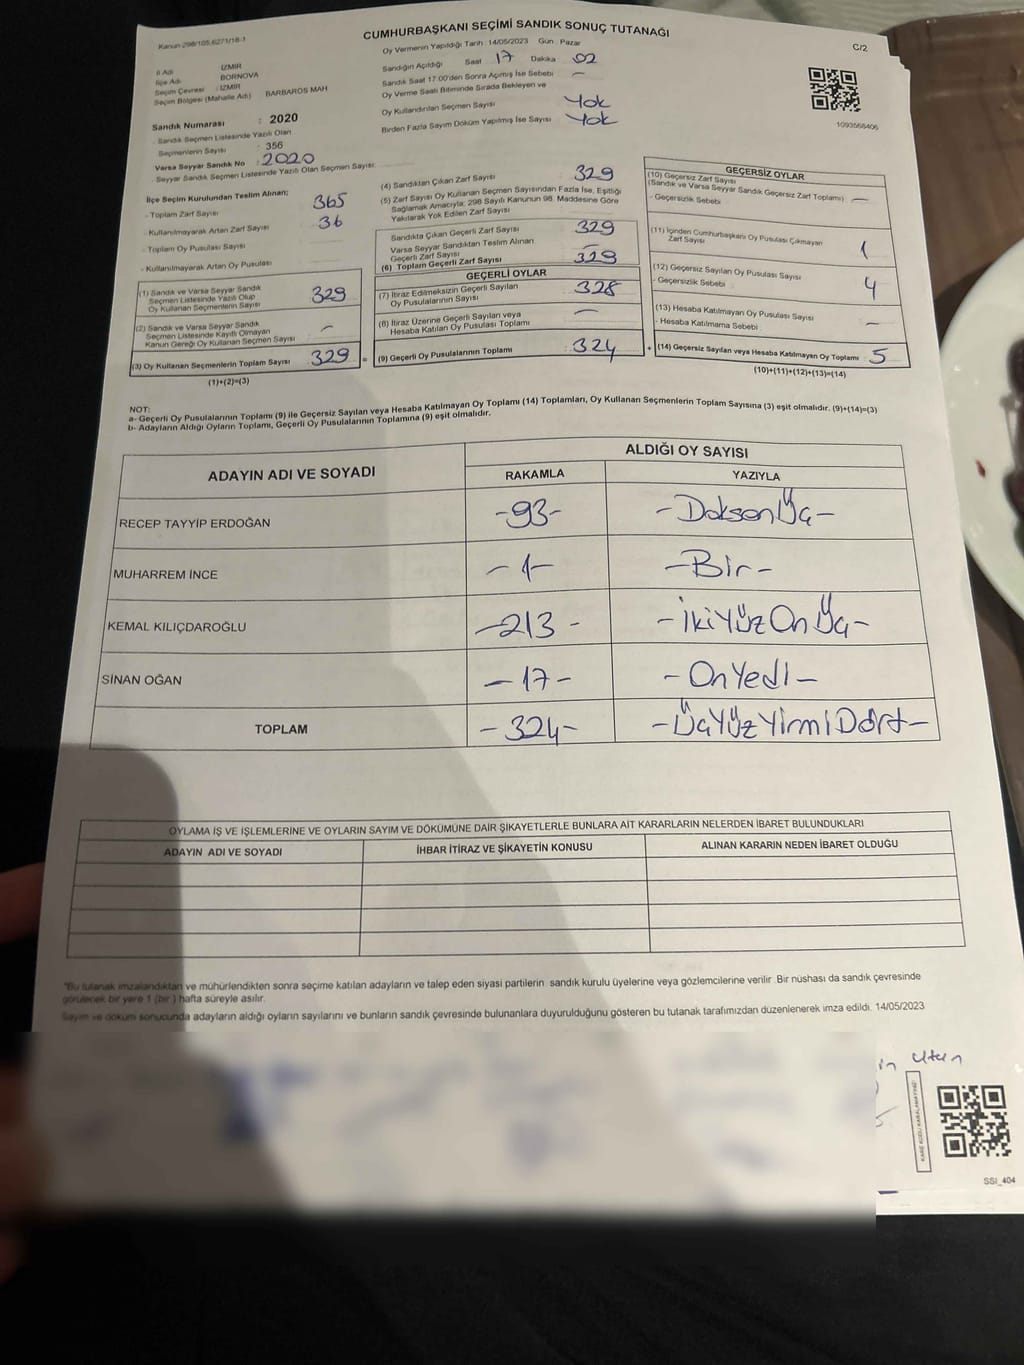 Kanun 298/105,6271/18-1
CUMHURBAŞKANI SEÇİMİ SANDIK SONUÇ TUTANAĞI
C/2
Oy Vermenin Yapıldığı Tarih : 14/05/2023 Gün : Pazar
Sandığın Açıldığı Saat 17 Dakika 02
Sandık Saat 17:00'den Sonra Açımış İse Sebebi —
Oy Verme Saati Bitiminde Sırada Bekleyen ve
Oy Kullandırılan Seçmen Sayısı Yok
Birden Fazla Sayım Döküm Yapılmış İse Sayısı Yok
İl Adı İZMİR
İlçe Adı BORNOVA
Seçim Çevresi : İZMİR
Seçim Bölgesi (Mahalle Adı) BARBAROS MAH
Sandık Numarası : 2020
Sandık Seçmen Listesinde Yazılı Olan
Seçmenlerin Sayısı : 356
Varsa Seyyar Sandık No : 2020
- Seyyar Sandık Seçmen Listesinde Yazılı Olan Seçmen Sayısı:
1093568406
İlçe Seçim Kurulundan Teslim Alınan;
- Toplam Zarf Sayısı 365
- Kullanılmayarak Artan Zarf Sayısı 36
- Toplam Oy Pusulası Sayısı
- Kullanılmayarak Artan Oy Pusulası
(1) Sandık ve Varsa Seyyar Sandık
Seçmen Listesinde Yazılı Olup
Oy Kullanan Seçmenlerin Sayısı 329
(2) Sandık ve Varsa Seyyar Sandık
Seçmen Listesinde Kayıtlı Olmayan
Kanun Gereği Oy Kullanan Seçmen Sayısı —
(3) Oy Kullanan Seçmenlerin Toplam Sayısı 329 =
(1)+(2)=(3)
(4) Sandıktan Çıkan Zarf Sayısı 329
(5) Zarf Sayısı Oy Kullanan Seçmen Sayısından Fazla İse, Eşitliği
Sağlamak Amacıyla; 298 Sayılı Kanunun 98. Maddesine Göre
Yakılarak Yok Edilen Zarf Sayısı
Sandıkta Çıkan Geçerli Zarf Sayısı 329
Varsa Seyyar Sandıktan Teslim Alınan
Geçerli Zarf Sayısı —
(6) Toplam Geçerli Zarf Sayısı 329
GEÇERLİ OYLAR
(7) İtiraz Edilmeksizin Geçerli Sayılan
Oy Pusulalarının Sayısı 328
(8) İtiraz Üzerine Geçerli Sayılan veya
Hesaba Katılan Oy Pusulası Toplamı —
(9) Geçerli Oy Pusulalarının Toplamı : 324 +
GEÇERSİZ OYLAR
(10) Geçersiz Zarf Sayısı
(Sandık ve Varsa Seyyar Sandık Geçersiz Zarf Toplamı) —
- Geçersizlik Sebebi
(11) İçinden Cumhurbaşkanı Oy Pusulası Çıkmayan
Zarf Sayısı 1
(12) Geçersiz Sayılan Oy Pusulası Sayısı 4
- Geçersizlik Sebebi
(13) Hesaba Katılmayan Oy Pusulası Sayısı —
- Hesaba Katılmama Sebebi
(14) Geçersiz Sayılan veya Hesaba Katılmayan Oy Toplamı 5
(10)+(11)+(12)+(13)=(14)
NOT:
a- Geçerli Oy Pusulalarının Toplamı (9) ile Geçersiz Sayılan veya Hesaba Katılmayan Oy Toplamı (14) Toplamları, Oy Kullanan Seçmenlerin Toplam Sayısına (3) eşit olmalıdır. (9)+(14)=(3)
b- Adayların Aldığı Oyların Toplamı, Geçerli Oy Pusulalarının Toplamına (9) eşit olmalıdır.
ADAYIN ADI VE SOYADI ALDIĞI OY SAYISI
RAKAMLA YAZIYLA
RECEP TAYYİP ERDOĞAN -93- -DoksanÜç-
MUHARREM İNCE -1- -Bir-
KEMAL KILIÇDAROĞLU -213- -İkiYüzOnÜç-
SİNAN OĞAN -17- -OnYedi-
TOPLAM -324- -ÜçYüzYirmiDört-
OYLAMA İŞ VE İŞLEMLERİNE VE OYLARIN SAYIM VE DÖKÜMÜNE DAİR ŞİKAYETLERLE BUNLARA AİT KARARLARIN NELERDEN İBARET BULUNDUKLARI
ADAYIN ADI VE SOYADI İHBAR İTİRAZ VE ŞİKAYETİN KONUSU ALINAN KARARIN NEDEN İBARET OLDUĞU
"Bu tutanak imzalandıktan ve mühürlendikten sonra seçime katılan adayların ve talep eden siyasi partilerin sandık kurulu üyelerine veya gözlemcilerine verilir. Bir nüshası da sandık çevresinde
görülecek bir yere 1 (bir) hafta süreyle asılır.
Sayım ve döküm sonucunda adayların aldığı oyların sayılarını ve bunların sandık çevresinde bulunanlara duyurulduğunu gösteren bu tutanak tarafımızdan düzenlenerek imza edildi. 14/05/2023
SSI_404